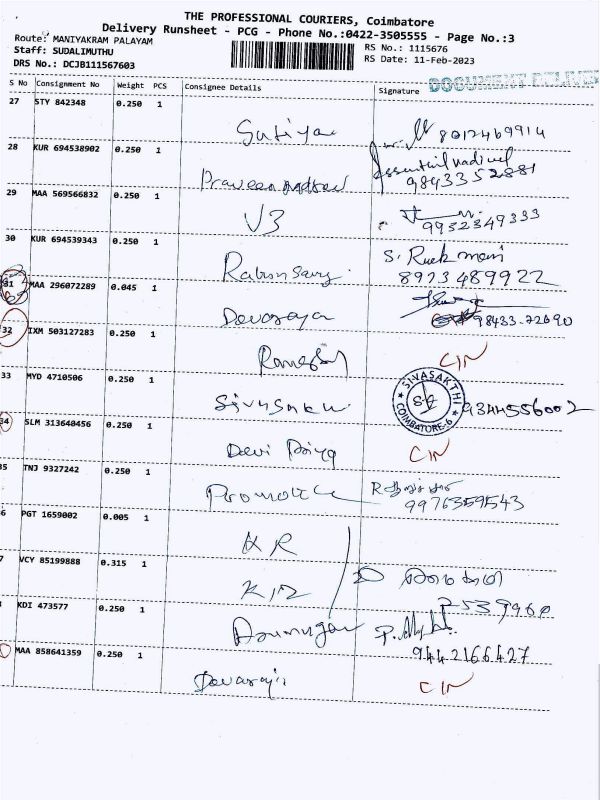 THE PROFESSIONAL COURIERS, Coimbatore
Delivery Runsheet - PCG - Phone No.:0422-3505555 - Page No.:3
Route: MANIYAKRAM PALAYAM
RS No.: 1115676
Staff: SUDALIMUTHU
RS Date: 11-Feb-2023
DRS No.: DCJB111567603
DOCUMENT DELIVE
S No Consignment No Weight PCS Consignee Details Signature
27 STY 842348 0.250 1
Sutiya 8012469914
28 KUR 694538902 0.250 1
Praveen 9843352881
29 MAA 569566832 0.250 1
V3 9952349333
30 KUR 694539343 0.250 1
S. Ruckmani
8973489922
31 MAA 296072289 0.045 1
Devaraya 98433-72690
32 IXM 503127283 0.250 1
Ramesh CIN
33 MYD 4710506 0.250 1
SIVASAKTHI COIMBATORE-6
Sivasaku 9344556002
34 SLM 313640456 0.250 1
Devi Priya CIN
35 TNJ 9327242 0.250 1
Promotic 9976359543
6 PGT 1659002 0.005 1
KR
7 VCY 85199888 0.315 1
KIN
KDI 473577 0.250 1
Arumugam
9442166427
MAA 858641359 0.250 1
Devaraji CIN